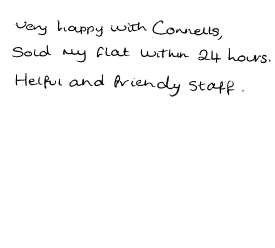 very happy with Connells,
Sold my flat within 24 hours.
Helful and friendly staff.